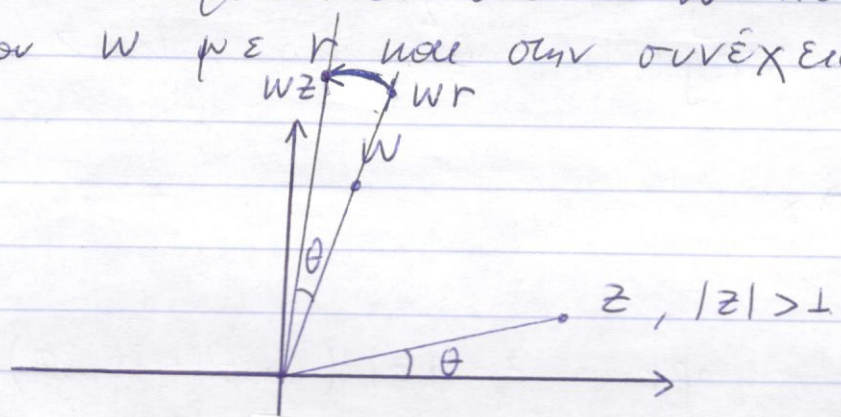 ον w με r και στην συνέχει
wz wr
w
θ
z , |z| > 1
θ